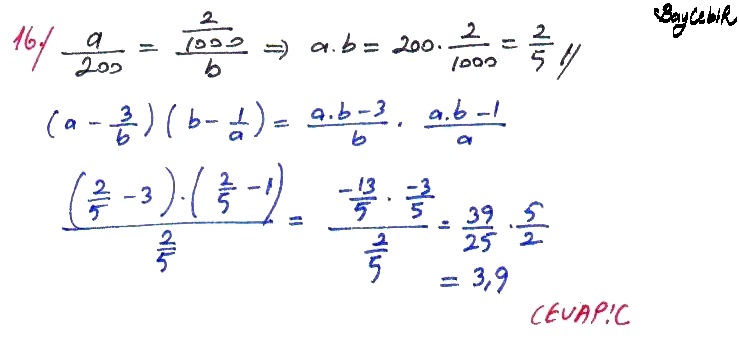 BayCebiR
16./ a/200 = (2/1000)/b ⇒ a.b = 200 . 2/1000 = 2/5 //
(a - 3/b)(b - 1/a) = (a.b - 3)/b . (a.b - 1)/a
((2/5 - 3).(2/5 - 1))/(2/5) = (-13/5 . -3/5)/(2/5) = 39/25 . 5/2
= 3,9
CEVAP:C